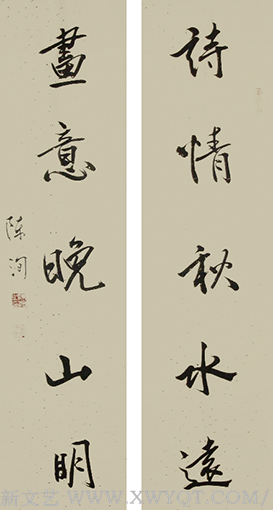 詩情秋水遠
畫意晚山明
陈洵
新文艺 - WWW.XWYQT.COM/